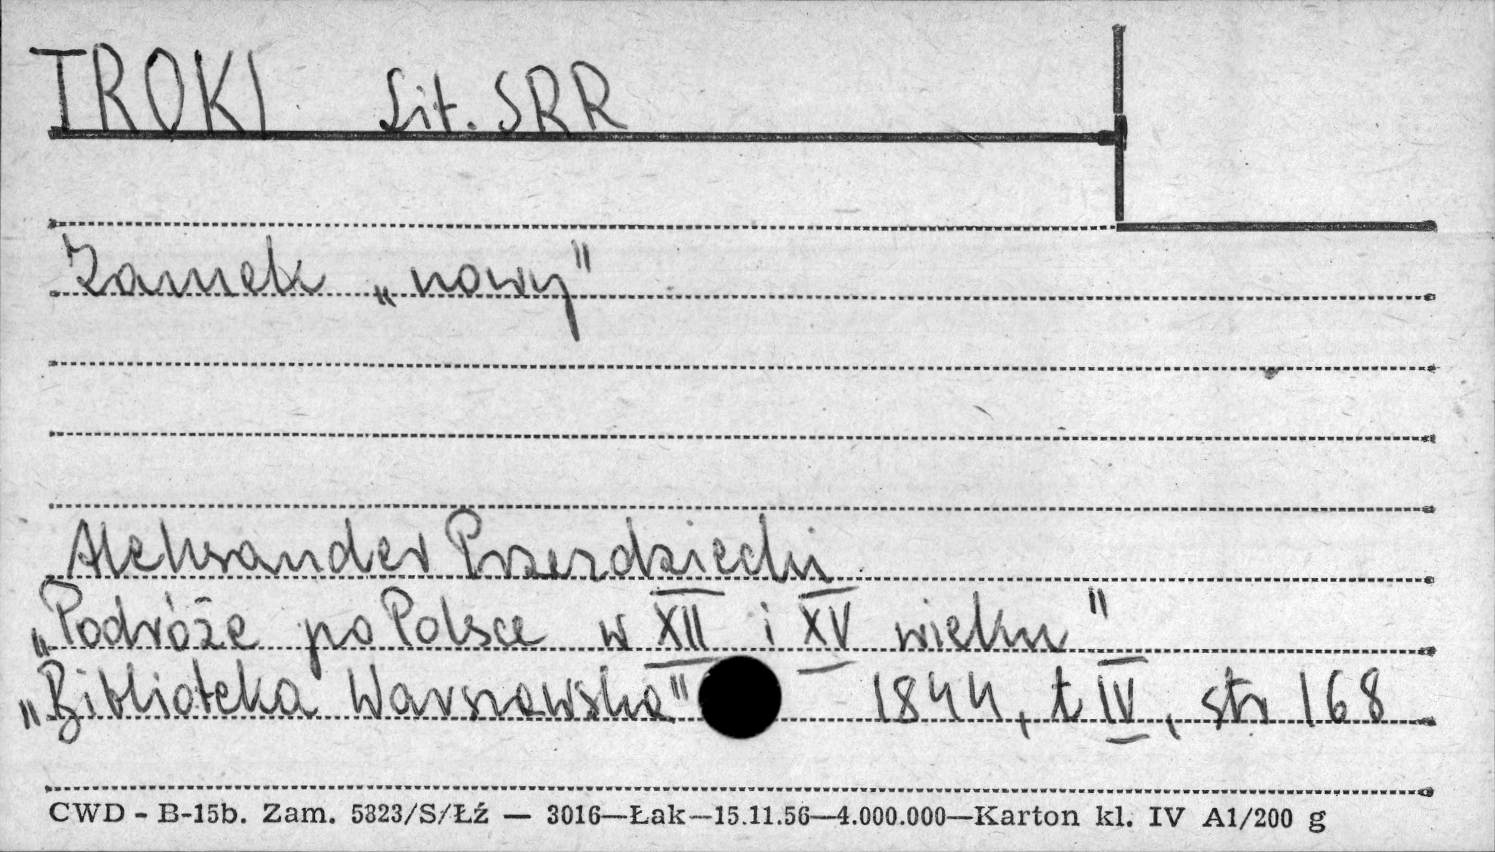 TROKI Lit. SRR
Zamek „nowy"
Aleksander Przezdziecki
„Podróże po Polsce w XII i XV wieku"
„Biblioteka Warszawska" 1844, t IV, str 168
CWD - B-15b. Zam. 5823/S/Łź — 3016—Łak—15.11.56—4.000.000—Karton kl. IV A1/200 g